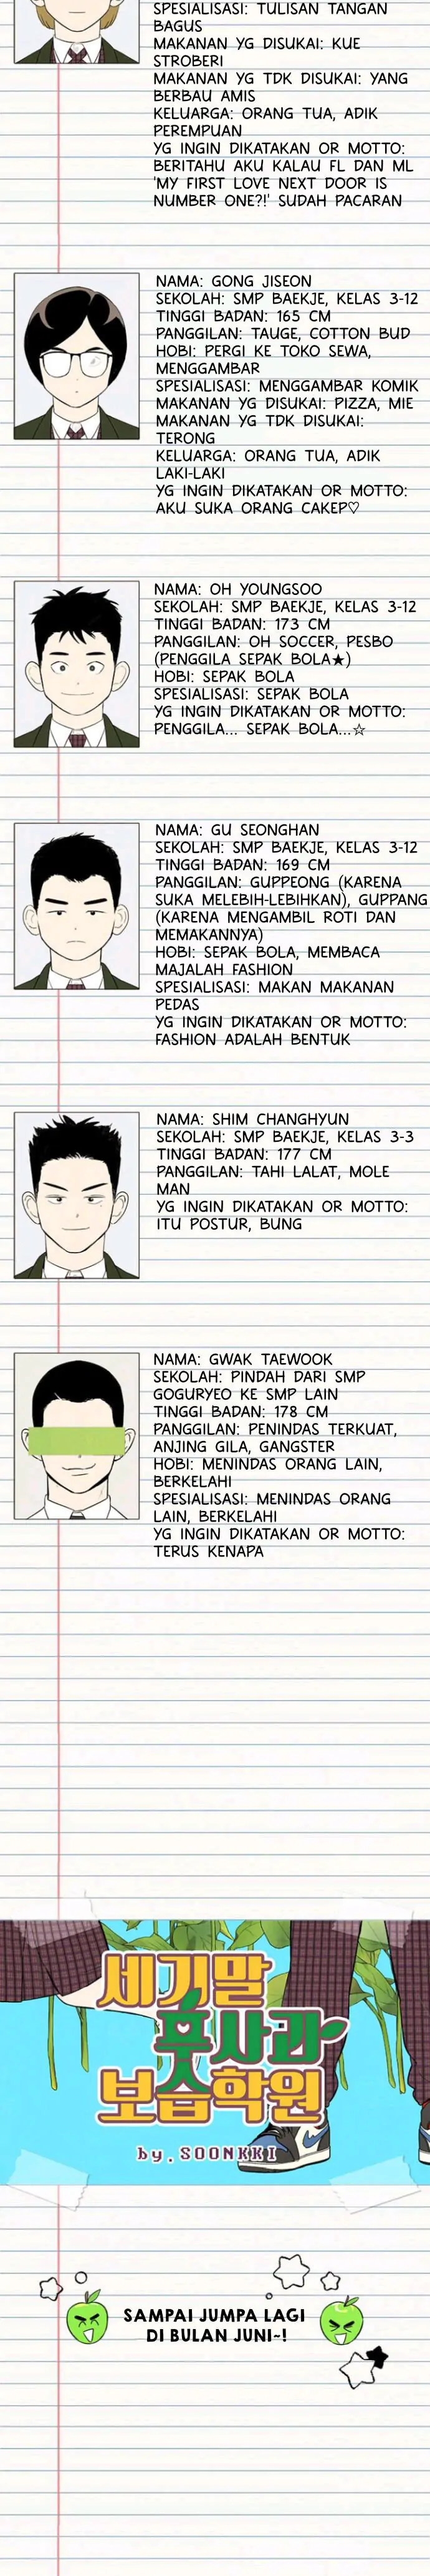 SPESIALISASI: TULISAN TANGAN
BAGUS
MAKANAN YG DISUKAI: KUE
STROBERI
MAKANAN YG TDK DISUKAI: YANG
BERBAU AMIS
KELUARGA: ORANG TUA, ADIK
PEREMPUAN
YG INGIN DIKATAKAN OR MOTTO:
BERITAHU AKU KALAU FL DAN ML
'MY FIRST LOVE NEXT DOOR IS
NUMBER ONE?!' SUDAH PACARAN
NAMA: GONG JISEON
SEKOLAH: SMP BAEKJE, KELAS 3-12
TINGGI BADAN: 165 CM
PANGGILAN: TAUGE, COTTON BUD
HOBI: PERGI KE TOKO SEWA,
MENGGAMBAR
SPESIALISASI: MENGGAMBAR KOMIK
MAKANAN YG DISUKAI: PIZZA, MIE
MAKANAN YG TDK DISUKAI:
TERONG
KELUARGA: ORANG TUA, ADIK
LAKI-LAKI
YG INGIN DIKATAKAN OR MOTTO:
AKU SUKA ORANG CAKEP♡
NAMA: OH YOUNGSOO
SEKOLAH: SMP BAEKJE, KELAS 3-12
TINGGI BADAN: 173 CM
PANGGILAN: OH SOCCER, PESBO
(PENGGILA SEPAK BOLA★)
HOBI: SEPAK BOLA
SPESIALISASI: SEPAK BOLA
YG INGIN DIKATAKAN OR MOTTO:
PENGGILA... SEPAK BOLA...☆
NAMA: GU SEONGHAN
SEKOLAH: SMP BAEKJE, KELAS 3-12
TINGGI BADAN: 169 CM
PANGGILAN: GUPPEONG (KARENA
SUKA MELEBIH-LEBIHKAN), GUPPANG
(KARENA MENGAMBIL ROTI DAN
MEMAKANNYA)
HOBI: SEPAK BOLA, MEMBACA
MAJALAH FASHION
SPESIALISASI: MAKAN MAKANAN
PEDAS
YG INGIN DIKATAKAN OR MOTTO:
FASHION ADALAH BENTUK
NAMA: SHIM CHANGHYUN
SEKOLAH: SMP BAEKJE, KELAS 3-3
TINGGI BADAN: 177 CM
PANGGILAN: TAHI LALAT, MOLE
MAN
YG INGIN DIKATAKAN OR MOTTO:
ITU POSTUR, BUNG
NAMA: GWAK TAEWOOK
SEKOLAH: PINDAH DARI SMP
GOGURYEO KE SMP LAIN
TINGGI BADAN: 178 CM
PANGGILAN: PENINDAS TERKUAT,
ANJING GILA, GANGSTER
HOBI: MENINDAS ORANG LAIN,
BERKELAHI
SPESIALISASI: MENINDAS ORANG
LAIN, BERKELAHI
YG INGIN DIKATAKAN OR MOTTO:
TERUS KENAPA
세기말
풋사과
보습학원
by. SOONKKI
SAMPAI JUMPA LAGI
DI BULAN JUNI~!